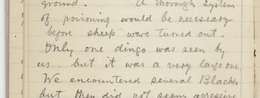 ground. A thorough system
of poisoning would be necessary
before sheep were turned out.
Only one dingo was seen by
us. but it was a very large one.
We encountered several Blacks
but they did not seem agressive